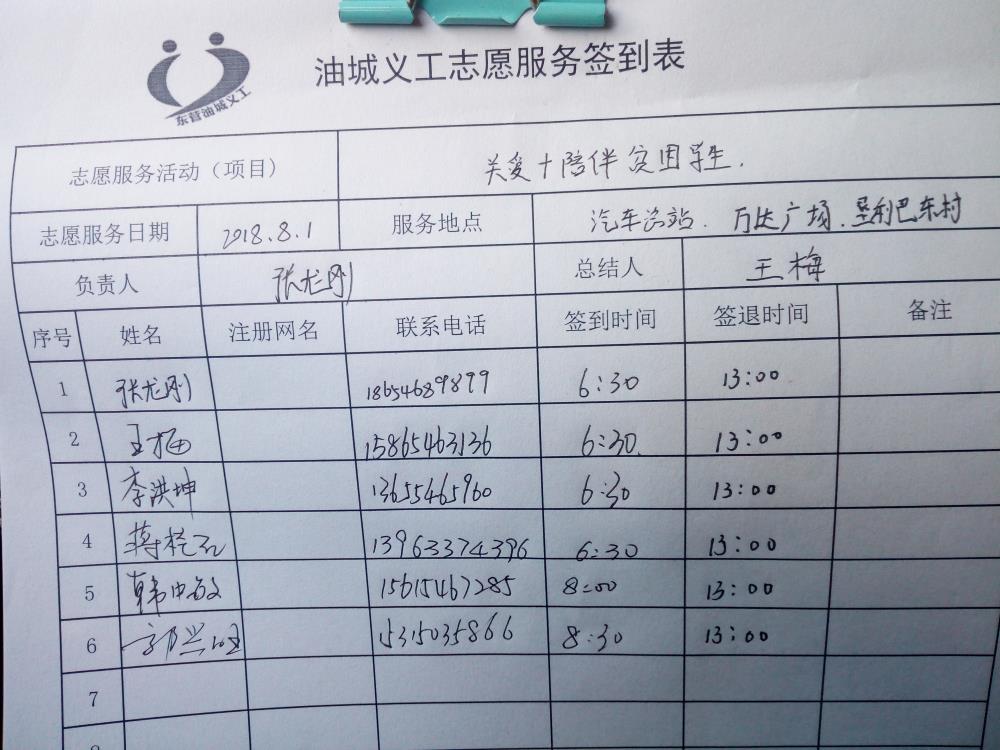 东营油城义工
油城义工志愿服务签到表
志愿服务活动（项目） 关爱十陪伴贫困学生.
志愿服务日期 2018.8.1 服务地点 汽车总站.万达广场.垦利巴东村
负责人 张龙刚 总结人 王梅
序号 姓名 注册网名 联系电话 签到时间 签退时间 备注
1 张龙刚 18654689899 6:30 13:00
2 王梅 15865463136 6:30 13:00
3 李洪坤 13655465960 6:30 13:00
4 13963374396 6:30 13:00
5 15615467285 8:00 13:00
6 15315035866 8:30 13:00
7